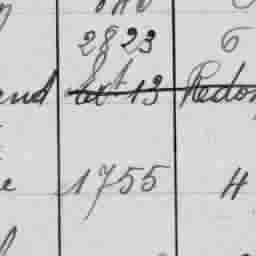 2823 6
end Ext 13 Redon
e 1755 H